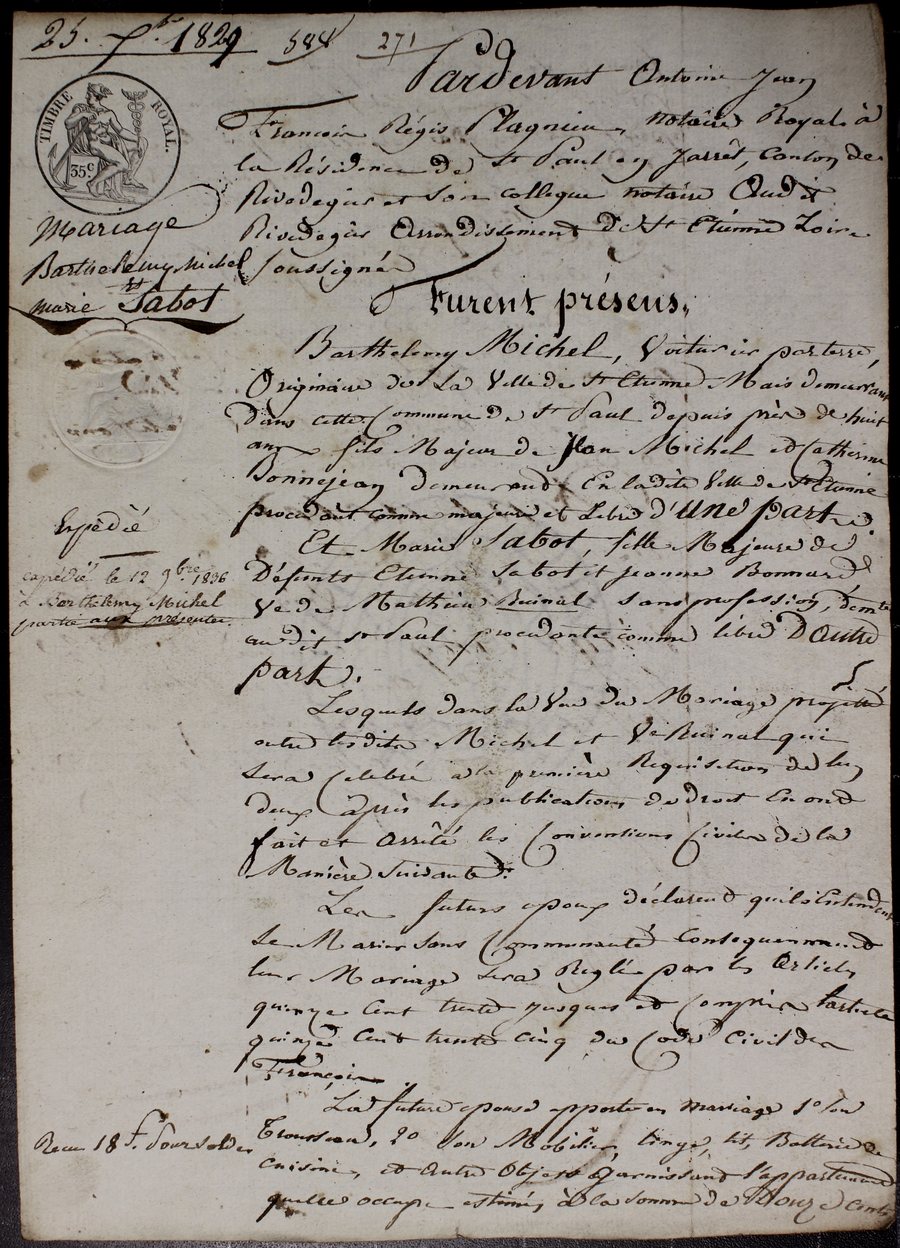 25. 7bre 1829 584 271
TIMBRE ROYAL.
35c
Mariage
Barthelemy Michel
et
marie Sabot
Expédié
expédié le 12 9bre 1836
à Barthelemy Michel
partie aux présentes.
Recu 18 f. pour solde
Pardevant Antoine Jean
François Régis Plagnieu, notaire Royal à
la Résidence de St Paul en Jarrêt, Canton de
Rivedegier et son collegue notaire Audit
Rivedegier Arrondissement de St Etienne Loire
soussignés
Furent présens,
Barthelemy Michel, Voiturier par terre,
Originaire de La Ville de St Etienne Mais demeurant
dans cette Commune de St Paul depuis près de huit
ans fils Majeur de Jean Michel et Catherine
Bonnejean demeurand En la dite Ville de St Etienne
procédant comme majeur et Libre d'une part.
Et Marie Sabot, fille Majeure de
Défunts Etienne Sabot et Jeanne Bonnard
Ve de Mathieu Ruinal sans profession, demte
audit St Paul procédante comme libre D'Autre
part.
Lesquels dans la Vue du Mariage projetté
entre lesdits Michel et Ve Ruinal qui
sera Celebré a la première Requisition de l'un
deux après les publications de droit En ond
fait et arrêté les Conventions Civiles de la
Manière suivante:
Les futurs epoux déclarend qu'ils Entendent
se Marier sans Communauté Consequemmend
leur Mariage sera Reglé par les Articles
quinze Cent trente jusques et Compris l'article
quinze Cent trente Cinq du Code Civil des
François.
La future epouse apporte en mariage 1o son
Trousseau, 2o son Mobilier, linge, lit, Batterie de
cuisine, et autre Objets garnissant l'appartement
quelle occupe estimés à la somme de Douze Cents